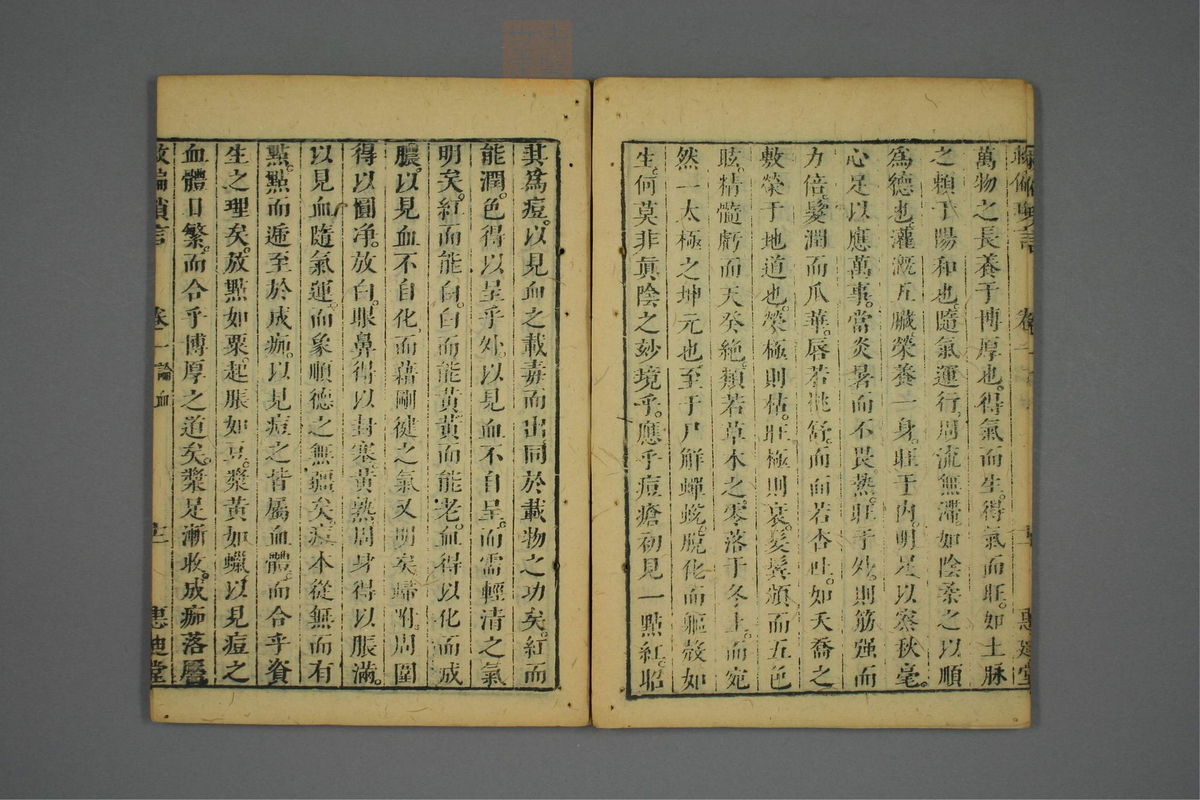 萬物之長養于博厚也。得氣而生。得氣而旺。如土脉
之賴于陽和也。隨氣運行。周流無滯。如陰柔之以順
爲德也。灌漑五臟。榮養一身。旺于内。明足以察秋毫。
心足以應萬事。當炎暑而不畏熱。旺于外。則筋强而
力倍。髮潤而爪華。唇若桃舒。而面若杏吐。如夭喬之
敷榮于地道也。榮極則枯。旺極則衰。髮鬓頒而五色
眩。精髓虧而天癸絶。類若草木之零落于冬土。而宛
然一太極之坤元也。至于尸解蟬蛻。脱化而軀殻如
生。何莫非眞陰之玅境乎。應乎痘瘡初見一點紅。昭
其爲痘。以見血之載毒而出。同於載物之功矣。紅而
能潤。色得以呈乎外。以見血不自呈。而需輕清之氣
明矣。紅而能白。白而能黃。黃而能老。血得以化而成
膿。以見血不自化。而藉剛健之氣又明矣。歸附。周圍
得以圓净。放白。眼鼻得以封塞。黃熟。周身得以脹滿。
以見血隨氣運。而象順德之無疆矣。痘本從無而有
點。點而遞至於成痂。以見痘之皆屬血體。而合乎資
生之理矣。放點如粟。起脹如豆。漿黃如蠟。以見痘之
血體日繁。而合乎博厚之道矣。漿足漸收。成痂落靨。
救偏瑣言 卷一 論血 惠迪堂